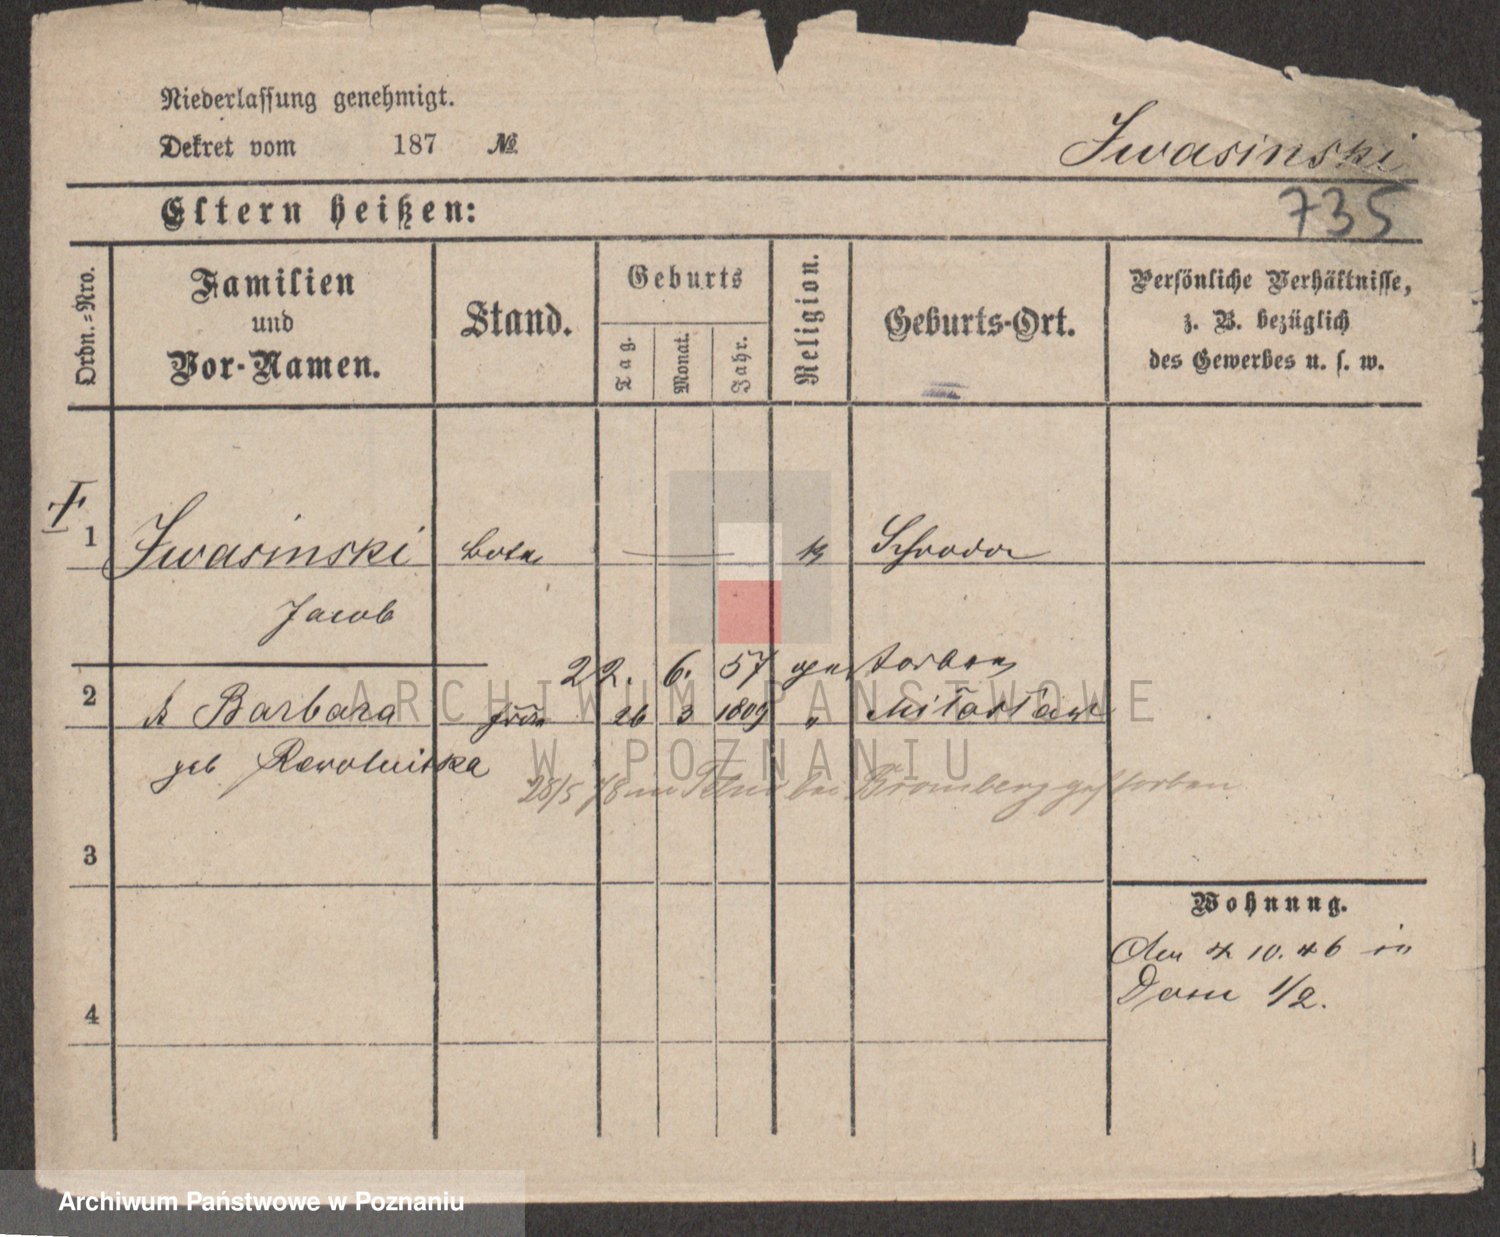 Niederlassung genehmigt.
Dekret vom 187 №
Iwasinski
735
Eltern heißen:
Ordn.=Nro.
Familien
und
Vor-Namen.
Stand.
Geburts
Tag.
Monat.
Jahr.
Religion.
Geburts-Ort.
Persönliche Verhältnisse,
z. B. bezüglich
des Gewerbes u. s. w.
1 Iwasinski Bote k Schroda
Jacob
22. 6. 57 gestorben
2 Barbara 26 3 1809 " Miloslaw
geb
28/5 78 in bei Bromberg gestorben
3
4
Wohnung.
Den 4 10. 46 in
Dom 1/2.
ARCHIWUM PAŃSTWOWE
W POZNANIU
Archiwum Państwowe w Poznaniu